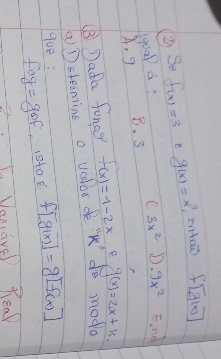 ② Se f(x)=3 e g(x)=x², então f[g(x)]
igual a:
A. 9 B. 3 C 3x² D. 9x² E.
③ Dada funça f(x)=1-2x e g(x)=2x+k,
a) Determine o valor de "k" de modo
que:
fog=gof, isto é f[g(x)]=g[f(x)]
Variavel Real